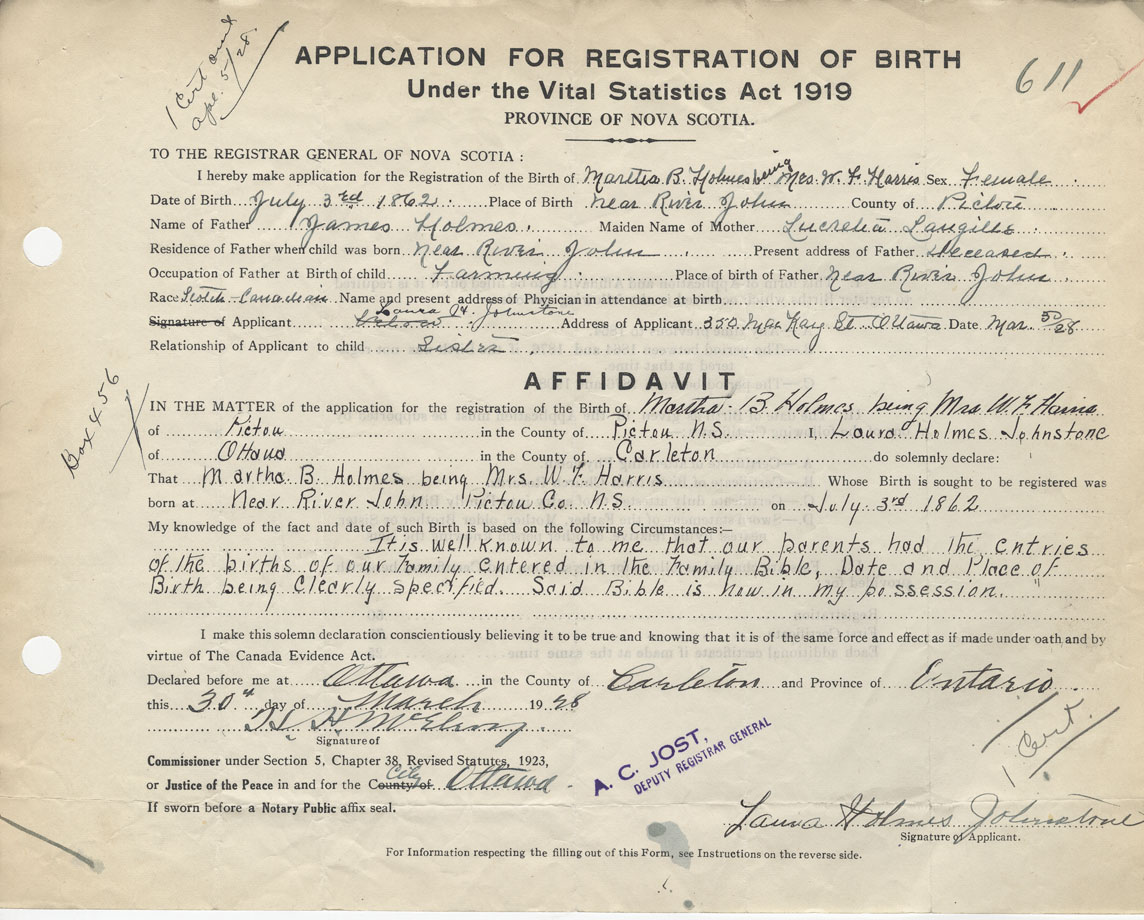 1 Cert and
Apl. 5/28.
APPLICATION FOR REGISTRATION OF BIRTH
611
Under the Vital Statistics Act 1919
PROVINCE OF NOVA SCOTIA.
TO THE REGISTRAR GENERAL OF NOVA SCOTIA :
I hereby make application for the Registration of the Birth of Martha B. Holmes being Mrs. W. F. Harris Sex Female
Date of Birth July 3rd 1862 Place of Birth Near River John County of Pictou
Name of Father James Holmes. Maiden Name of Mother Lucretia Langille
Residence of Father when child was born Near River John Present address of Father Deceased
Occupation of Father at Birth of child Farming Place of birth of Father Near River John
Race Scotch-Canadian Name and present address of Physician in attendance at birth
Signature of Applicant Laura H. Johnstone Address of Applicant 350 MacKay St. Ottawa Date Mar. 30/28
Relationship of Applicant to child Sister
AFFIDAVIT
Box 456
IN THE MATTER of the application for the registration of the Birth of Martha B Holmes being Mrs W. F Harris
of Pictou in the County of Pictou N.S. I, Laura Holmes Johnstone
of Ottawa in the County of Carleton do solemnly declare:
That Martha B. Holmes being Mrs. W. F. Harris Whose Birth is sought to be registered was
born at Near River John Pictou Co. N.S. on July 3rd 1862
My knowledge of the fact and date of such Birth is based on the following Circumstances:—
It is well known to me that our parents had the entries
of the births of our Family entered in the Family Bible, Date and Place of
Birth being Clearly specified. Said Bible is now in my possession.
I make this solemn declaration conscientiously believing it to be true and knowing that it is of the same force and effect as if made under oath and by
virtue of The Canada Evidence Act.
Declared before me at Ottawa in the County of Carleton and Province of Ontario
this 30th day of March 1928
H. McElroy
Signature of
1 Cert.
Commissioner under Section 5, Chapter 38, Revised Statutes, 1923,
or Justice of the Peace in and for the County of City Ottawa
A. C. JOST,
DEPUTY REGISTRAR GENERAL
If sworn before a Notary Public affix seal.
Laura Holmes Johnstone
Signature of Applicant.
For Information respecting the filling out of this Form, see Instructions on the reverse side.